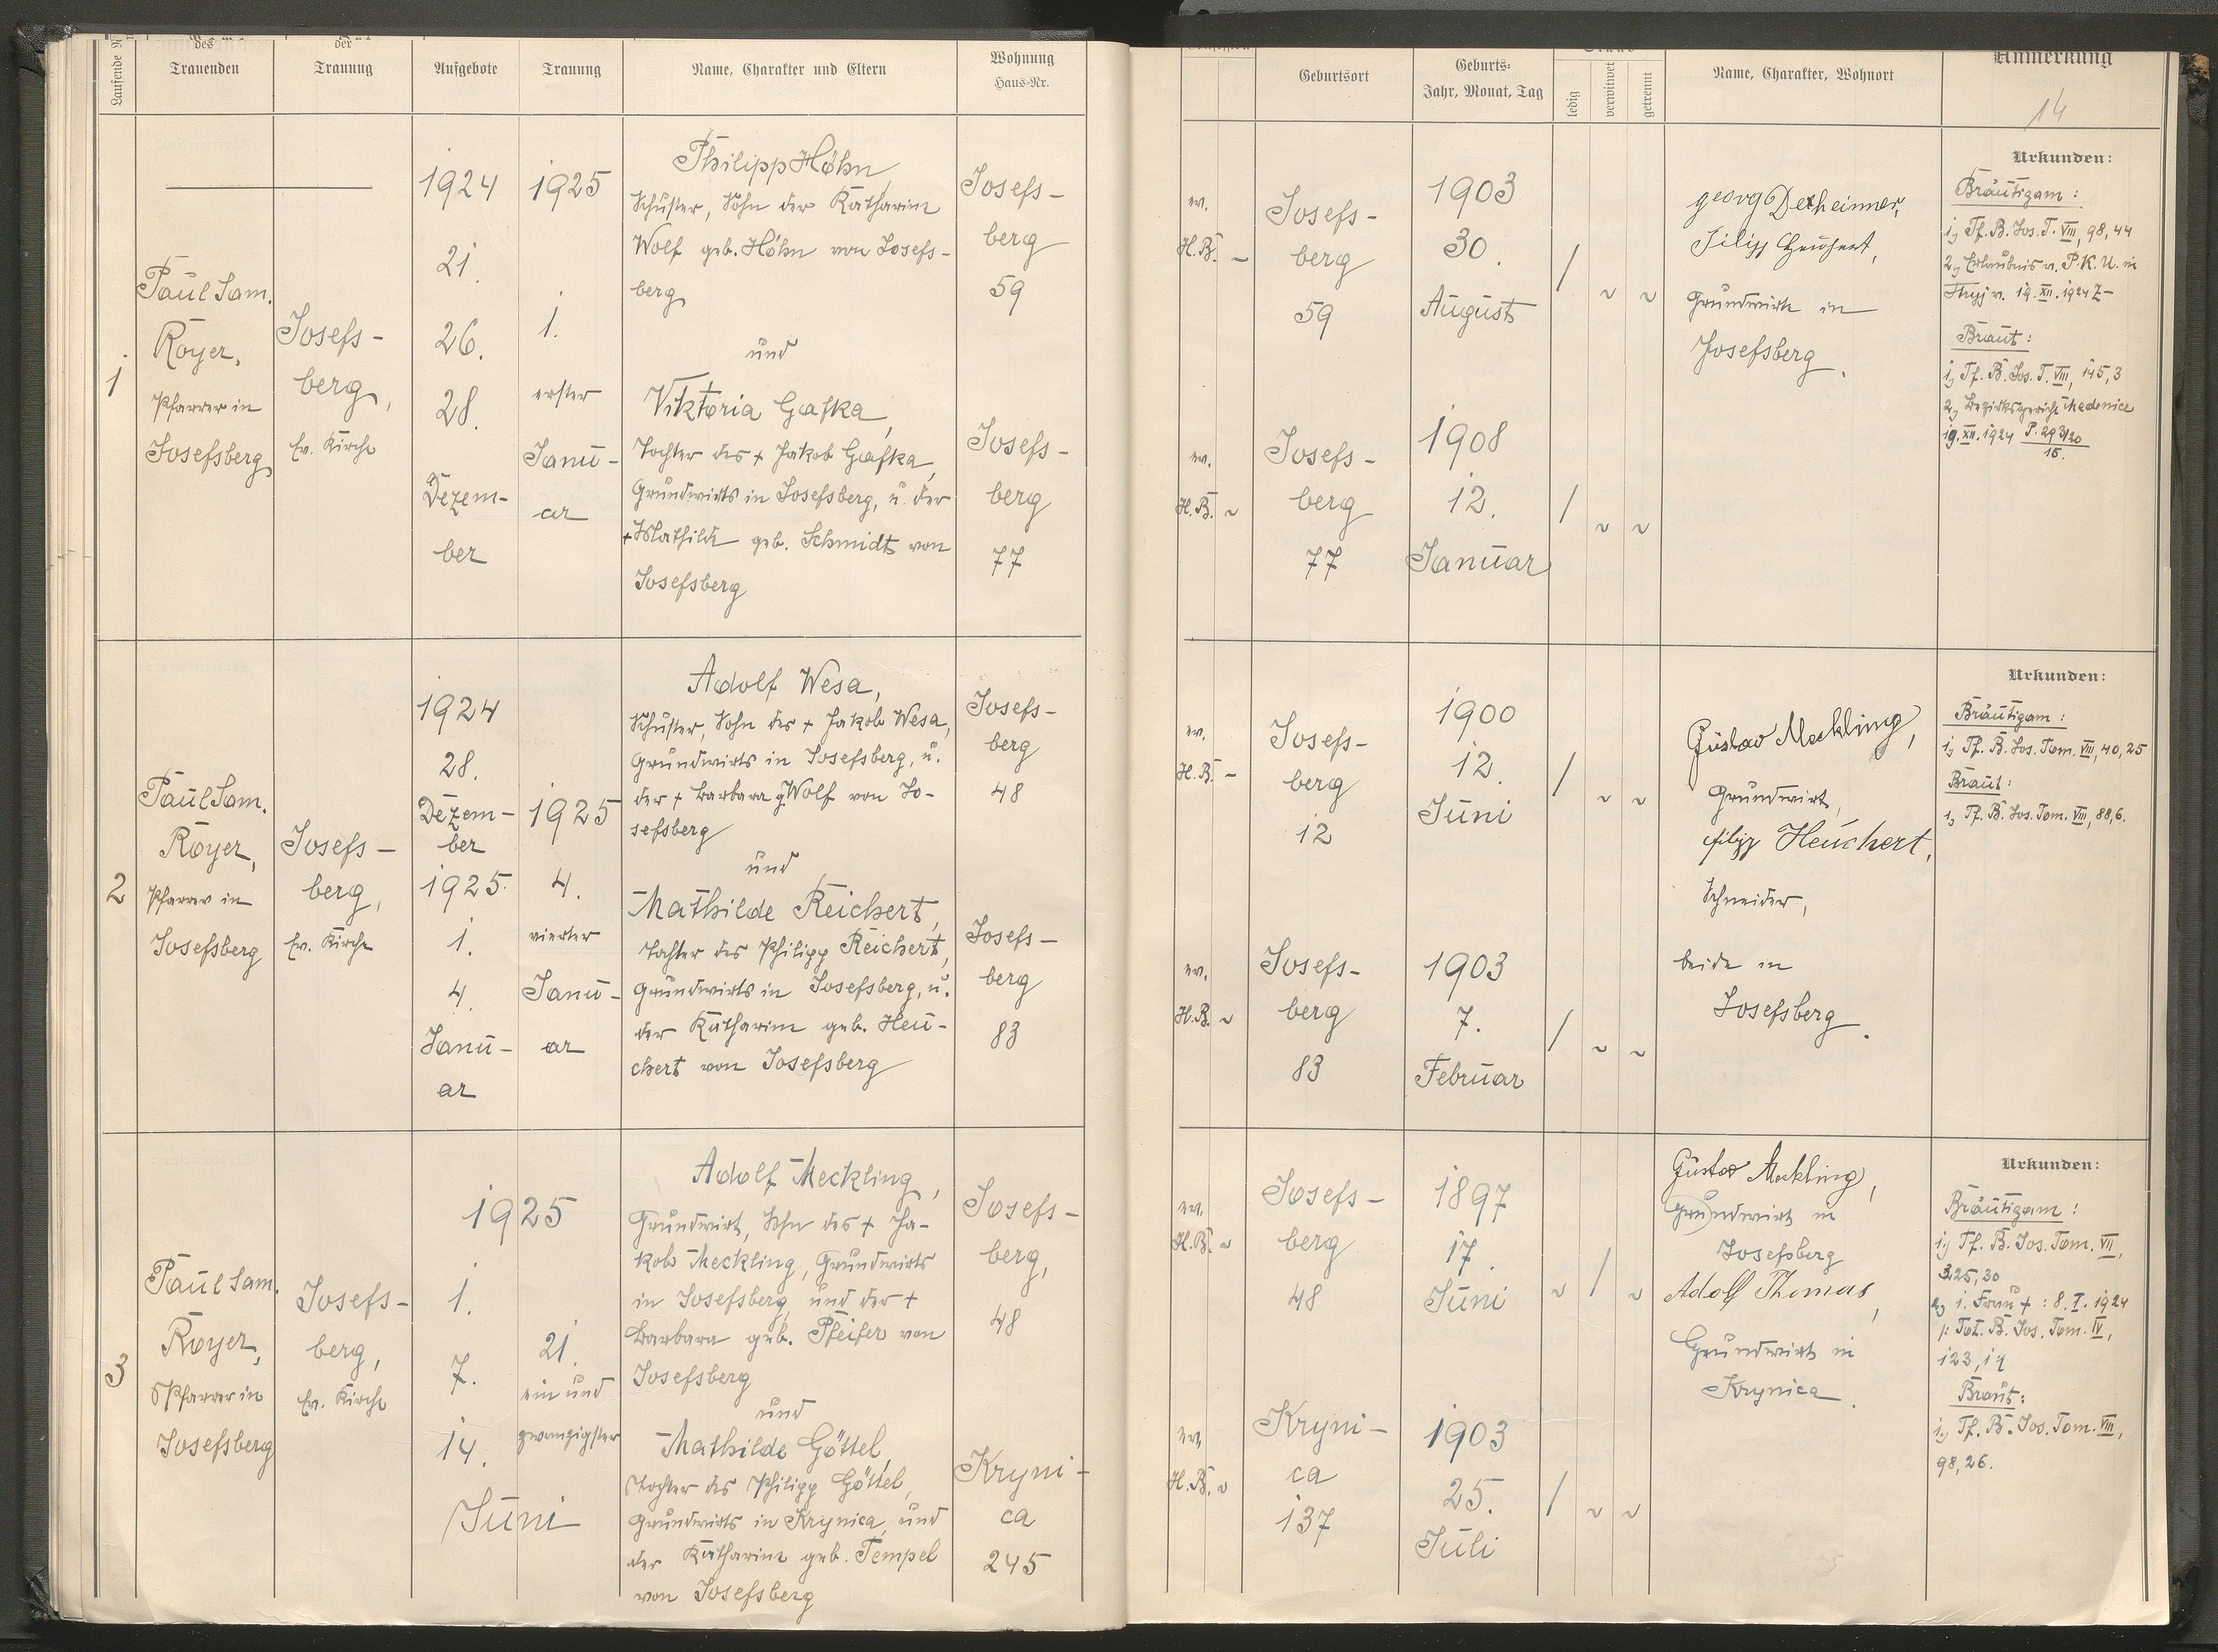 Laufende
des
Trauenden
der
Trauung
Aufgebote
Trauung
Name, Charakter und Eltern
Wohnung
Haus-Nr.
Geburtsort
Geburts-
Jahr, Monat, Tag
ledig
verwitwet
getrennt
Name, Charakter, Wohnort
Anmerkung
14
1
Paul Sam.
Royer,
Pfarrer in
Josefsberg
Josefs-
berg,
Ev. Kirche
1924
21.
26.
28.
Dezem-
ber
1925
1.
erster
Janu-
ar
Philipp Höhn
Schuster, Sohn der Katharine
Wolf geb. Höhn von Josefs-
berg
und
Viktoria Gafka,
Tochter des + Jakob Gafka,
Grundwirts in Josefsberg, u. der
+ Mathilde geb. Schmidt von
Josefsberg
Josefs-
berg
59
Josefs-
berg
77
ev.
H.B.
Josefs-
berg
59
1903
30.
August
/
ev.
H.B.
Josefs-
berg
77
1908
12.
Januar
/
Georg Dexheimer,
Filipp Heuchert,
Grundwirte in
Josefsberg.
Urkunden:
Bräutigam:
1, Tf. B. Jos. T. VIII, 98, 44
2, Erlaubnis v. P.K.U. in
Stryj v. 19. XII. 1924 Z-
Braut:
1, Tf. B. Jos. T. VIII, 145, 3
2, Bezirksgericht Medenice
19. XII. 1924 P. 293/20
15.
2
Paul Sam.
Royer,
Pfarrer in
Josefsberg
Josefs-
berg,
Ev. Kirche
1924
28.
Dezem-
ber
1925
1.
4.
Janu-
ar
1925
4.
vierter
Janu-
ar
Adolf Wesa,
Schuster, Sohn des + Jakob Wesa,
Grundwirts in Josefsberg, u.
der + Barbara g. Wolf von Jo-
sefsberg
und
Mathilde Reichert,
Tochter des Philipp Reichert,
Grundwirts in Josefsberg, u.
der Katharine geb. Heu-
chert von Josefsberg
Josefs-
berg
48
Josefs-
berg
83
ev.
H.B.
Josefs-
berg
12
1900
12.
Juni
/
ev.
H.B.
Josefs-
berg
83
1903
7.
Februar
/
Gustav Meckling,
Grundwirt,
Filipp Heuchert,
Schneider,
beide in
Josefsberg.
Urkunden:
Bräutigam:
1, Tf. B. Jos. Tom. VIII, 40, 25
Braut:
1, Tf. B. Jos. Tom. VIII, 88, 6.
3
Paul Sam.
Royer,
Pfarrer in
Josefsberg
Josefs-
berg,
Ev. Kirche
1925
1.
7.
14.
Juni
21.
ein und
zwanzigster
Adolf Meckling,
Grundwirt, Sohn des + Ja-
kob Meckling, Grundwirts
in Josefsberg, und der +
Barbara geb. Pfeifer von
Josefsberg
und
Mathilde Göttel,
Tochter des Philipp Göttel,
Grundwirts in Krynica, und
der Katharine geb. Tempel
von Josefsberg
Josefs-
berg,
48
Kryni-
ca
245
ev.
H.B.
Josefs-
berg
48
1897
17.
Juni
/
ev.
H.B.
Kryni-
ca
137
1903
25.
Juli
/
Gustav Meckling,
Grundwirt in
Josefsberg
Adolf Thomas,
Grundwirt in
Krynica.
Urkunden:
Bräutigam:
1, Tf. B. Jos. Tom. VII,
225, 30
2, 1. Frau + : 8. I. 1924
/: Tot. B. Jos. Tom. IV,
123, 14
Braut:
1, Tf. B. Jos. Tom. VIII,
98, 26.